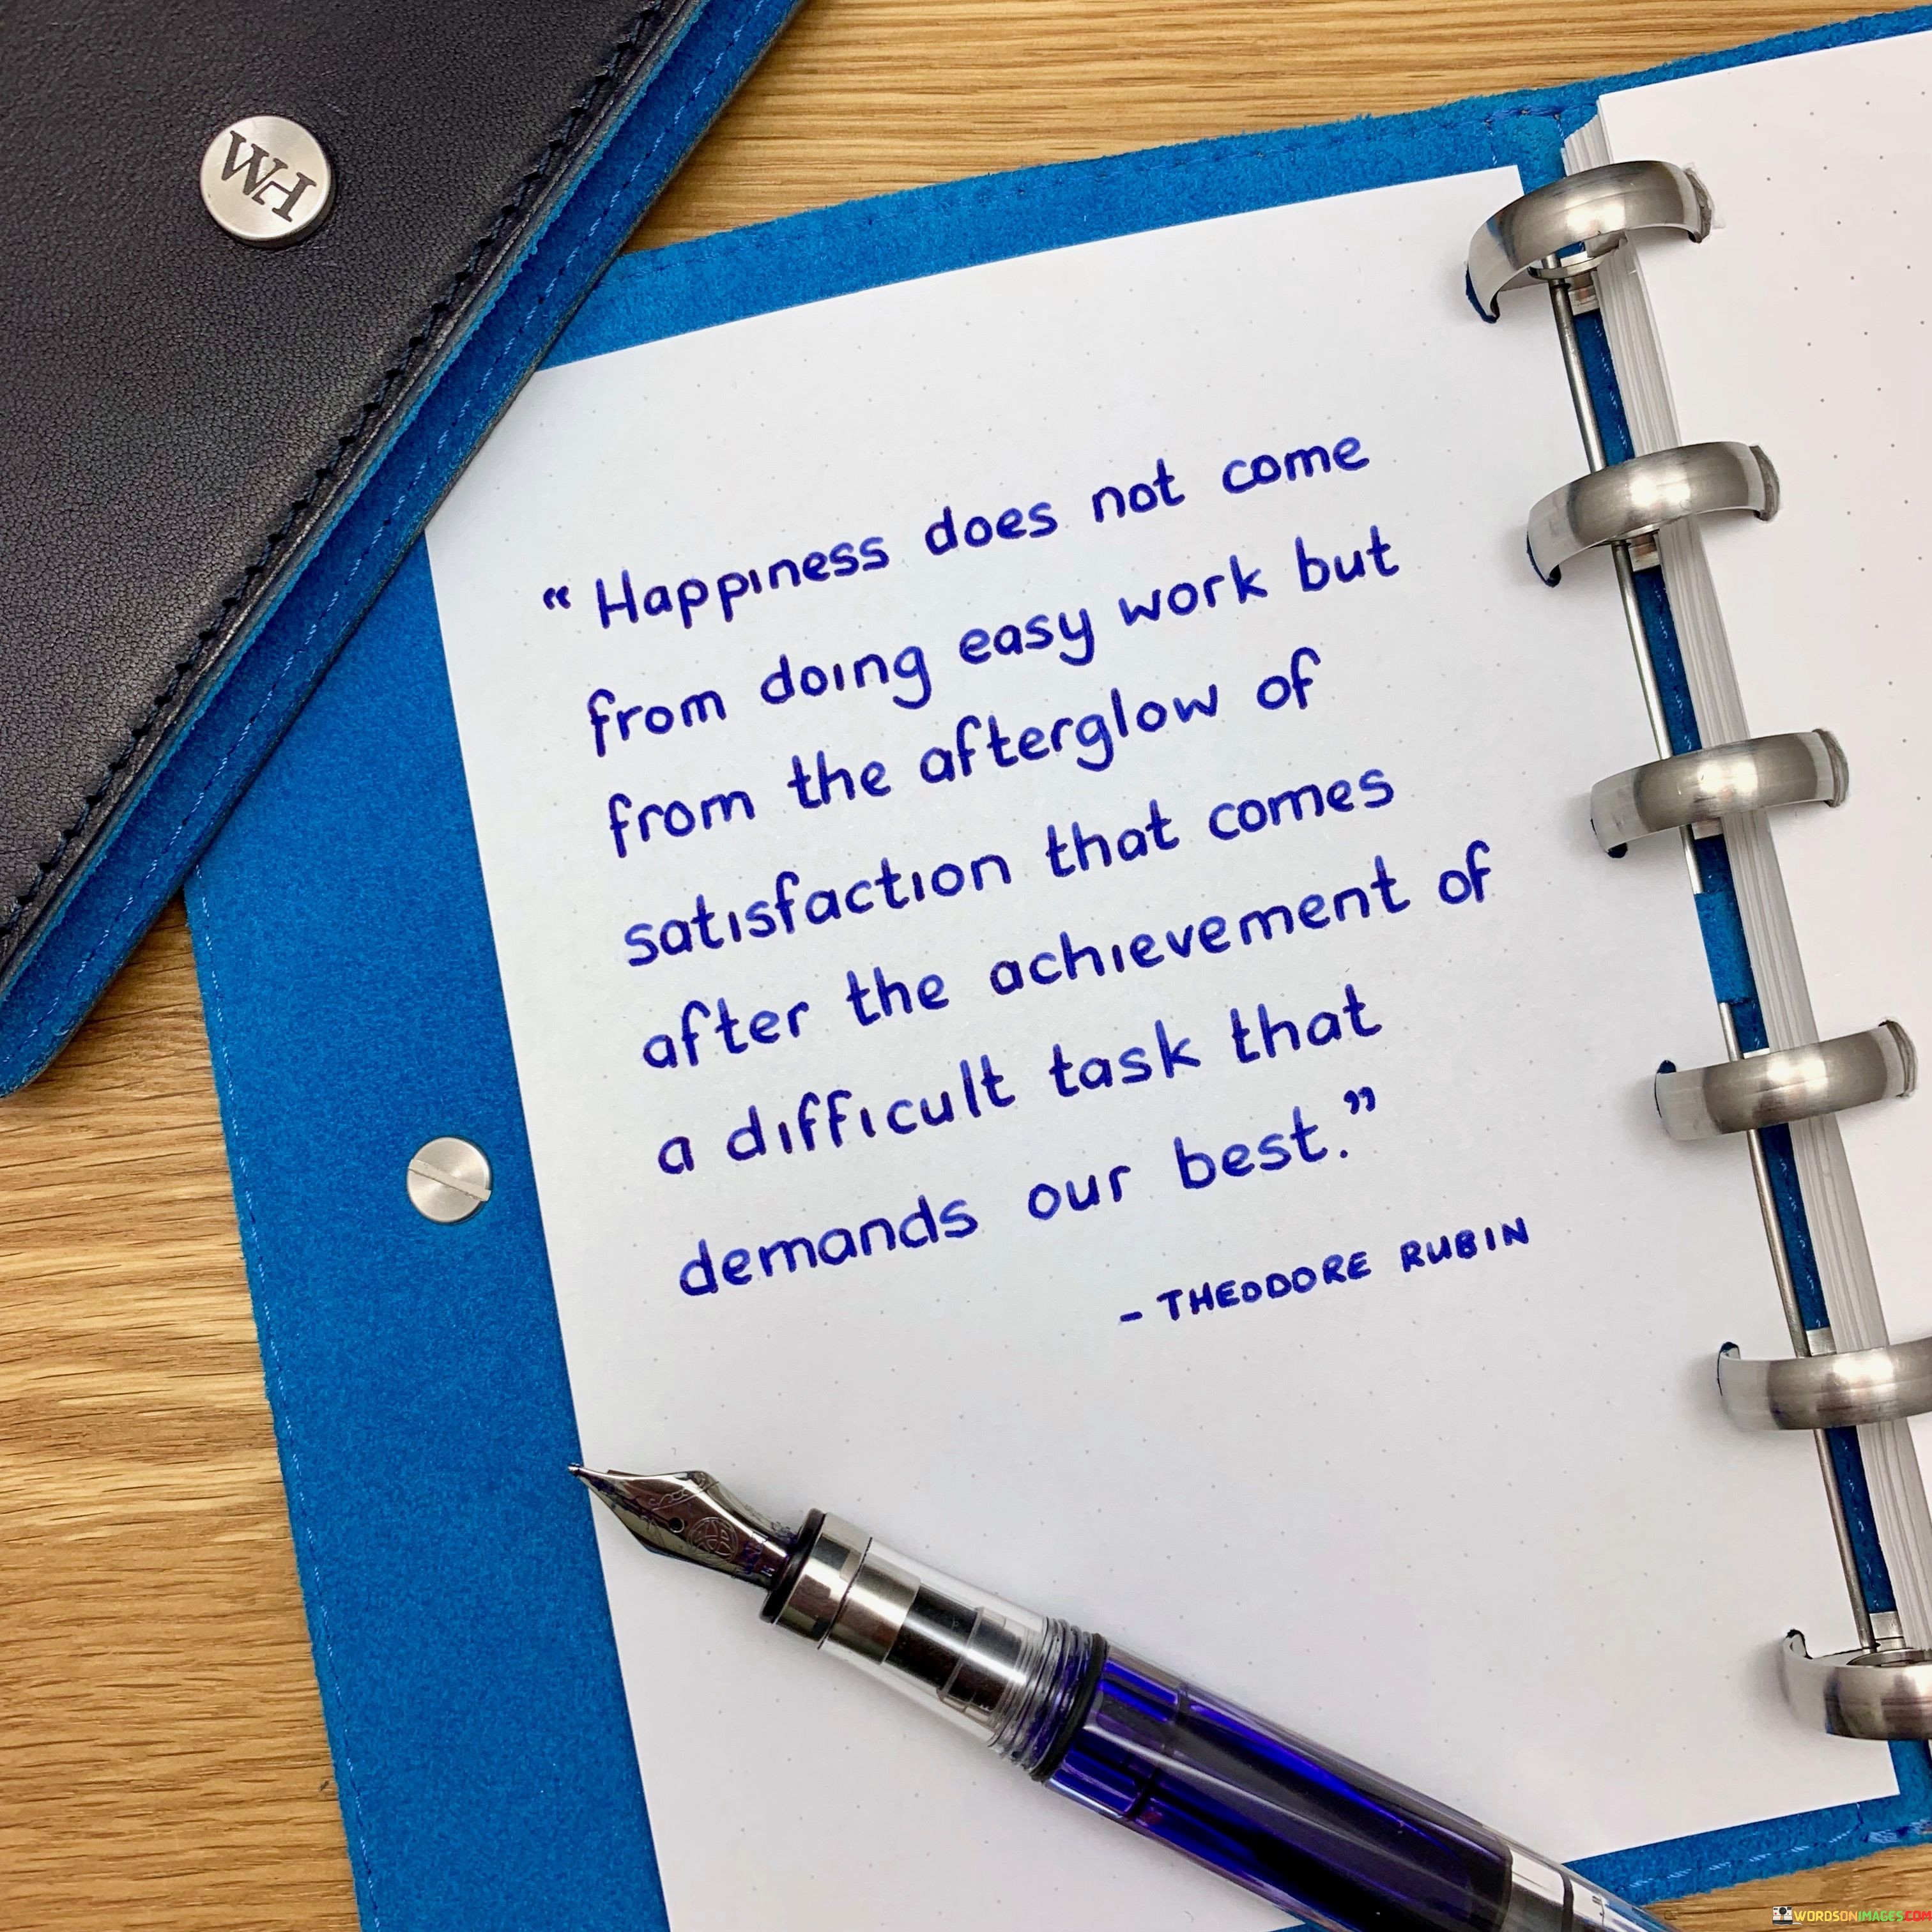 WH
“Happiness does not come
from doing easy work but
from the afterglow of
satisfaction that comes
after the achievement of
a difficult task that
demands our best.”
- THEODORE RUBIN
WORDSONIMAGES.COM